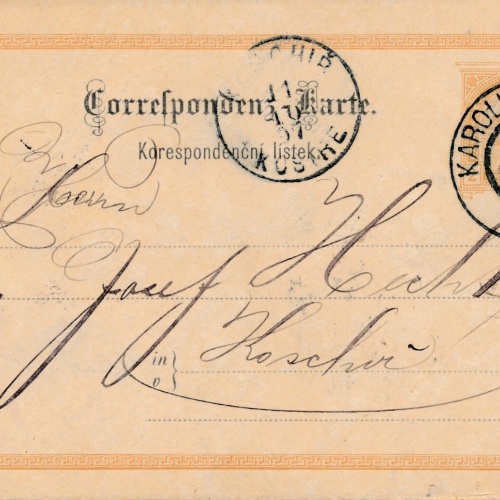 Correspondenz-Karte.
Korespondenční lístek.
KOSCHIŘ
11
KOŠÍŘE
KAROLI
Herrn
Josef Hecht
in
v
Koschiř